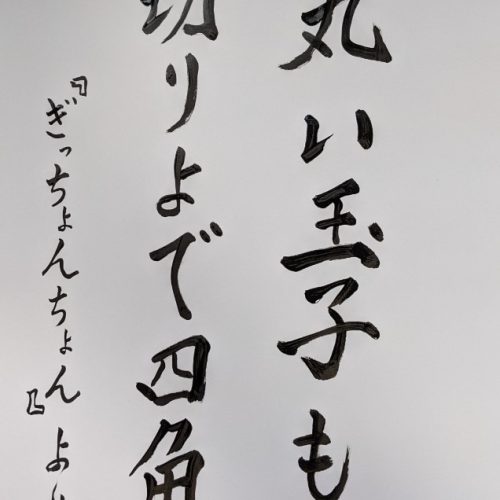 丸い玉子も
切りよで四角
『ぎっちょんちょん』より